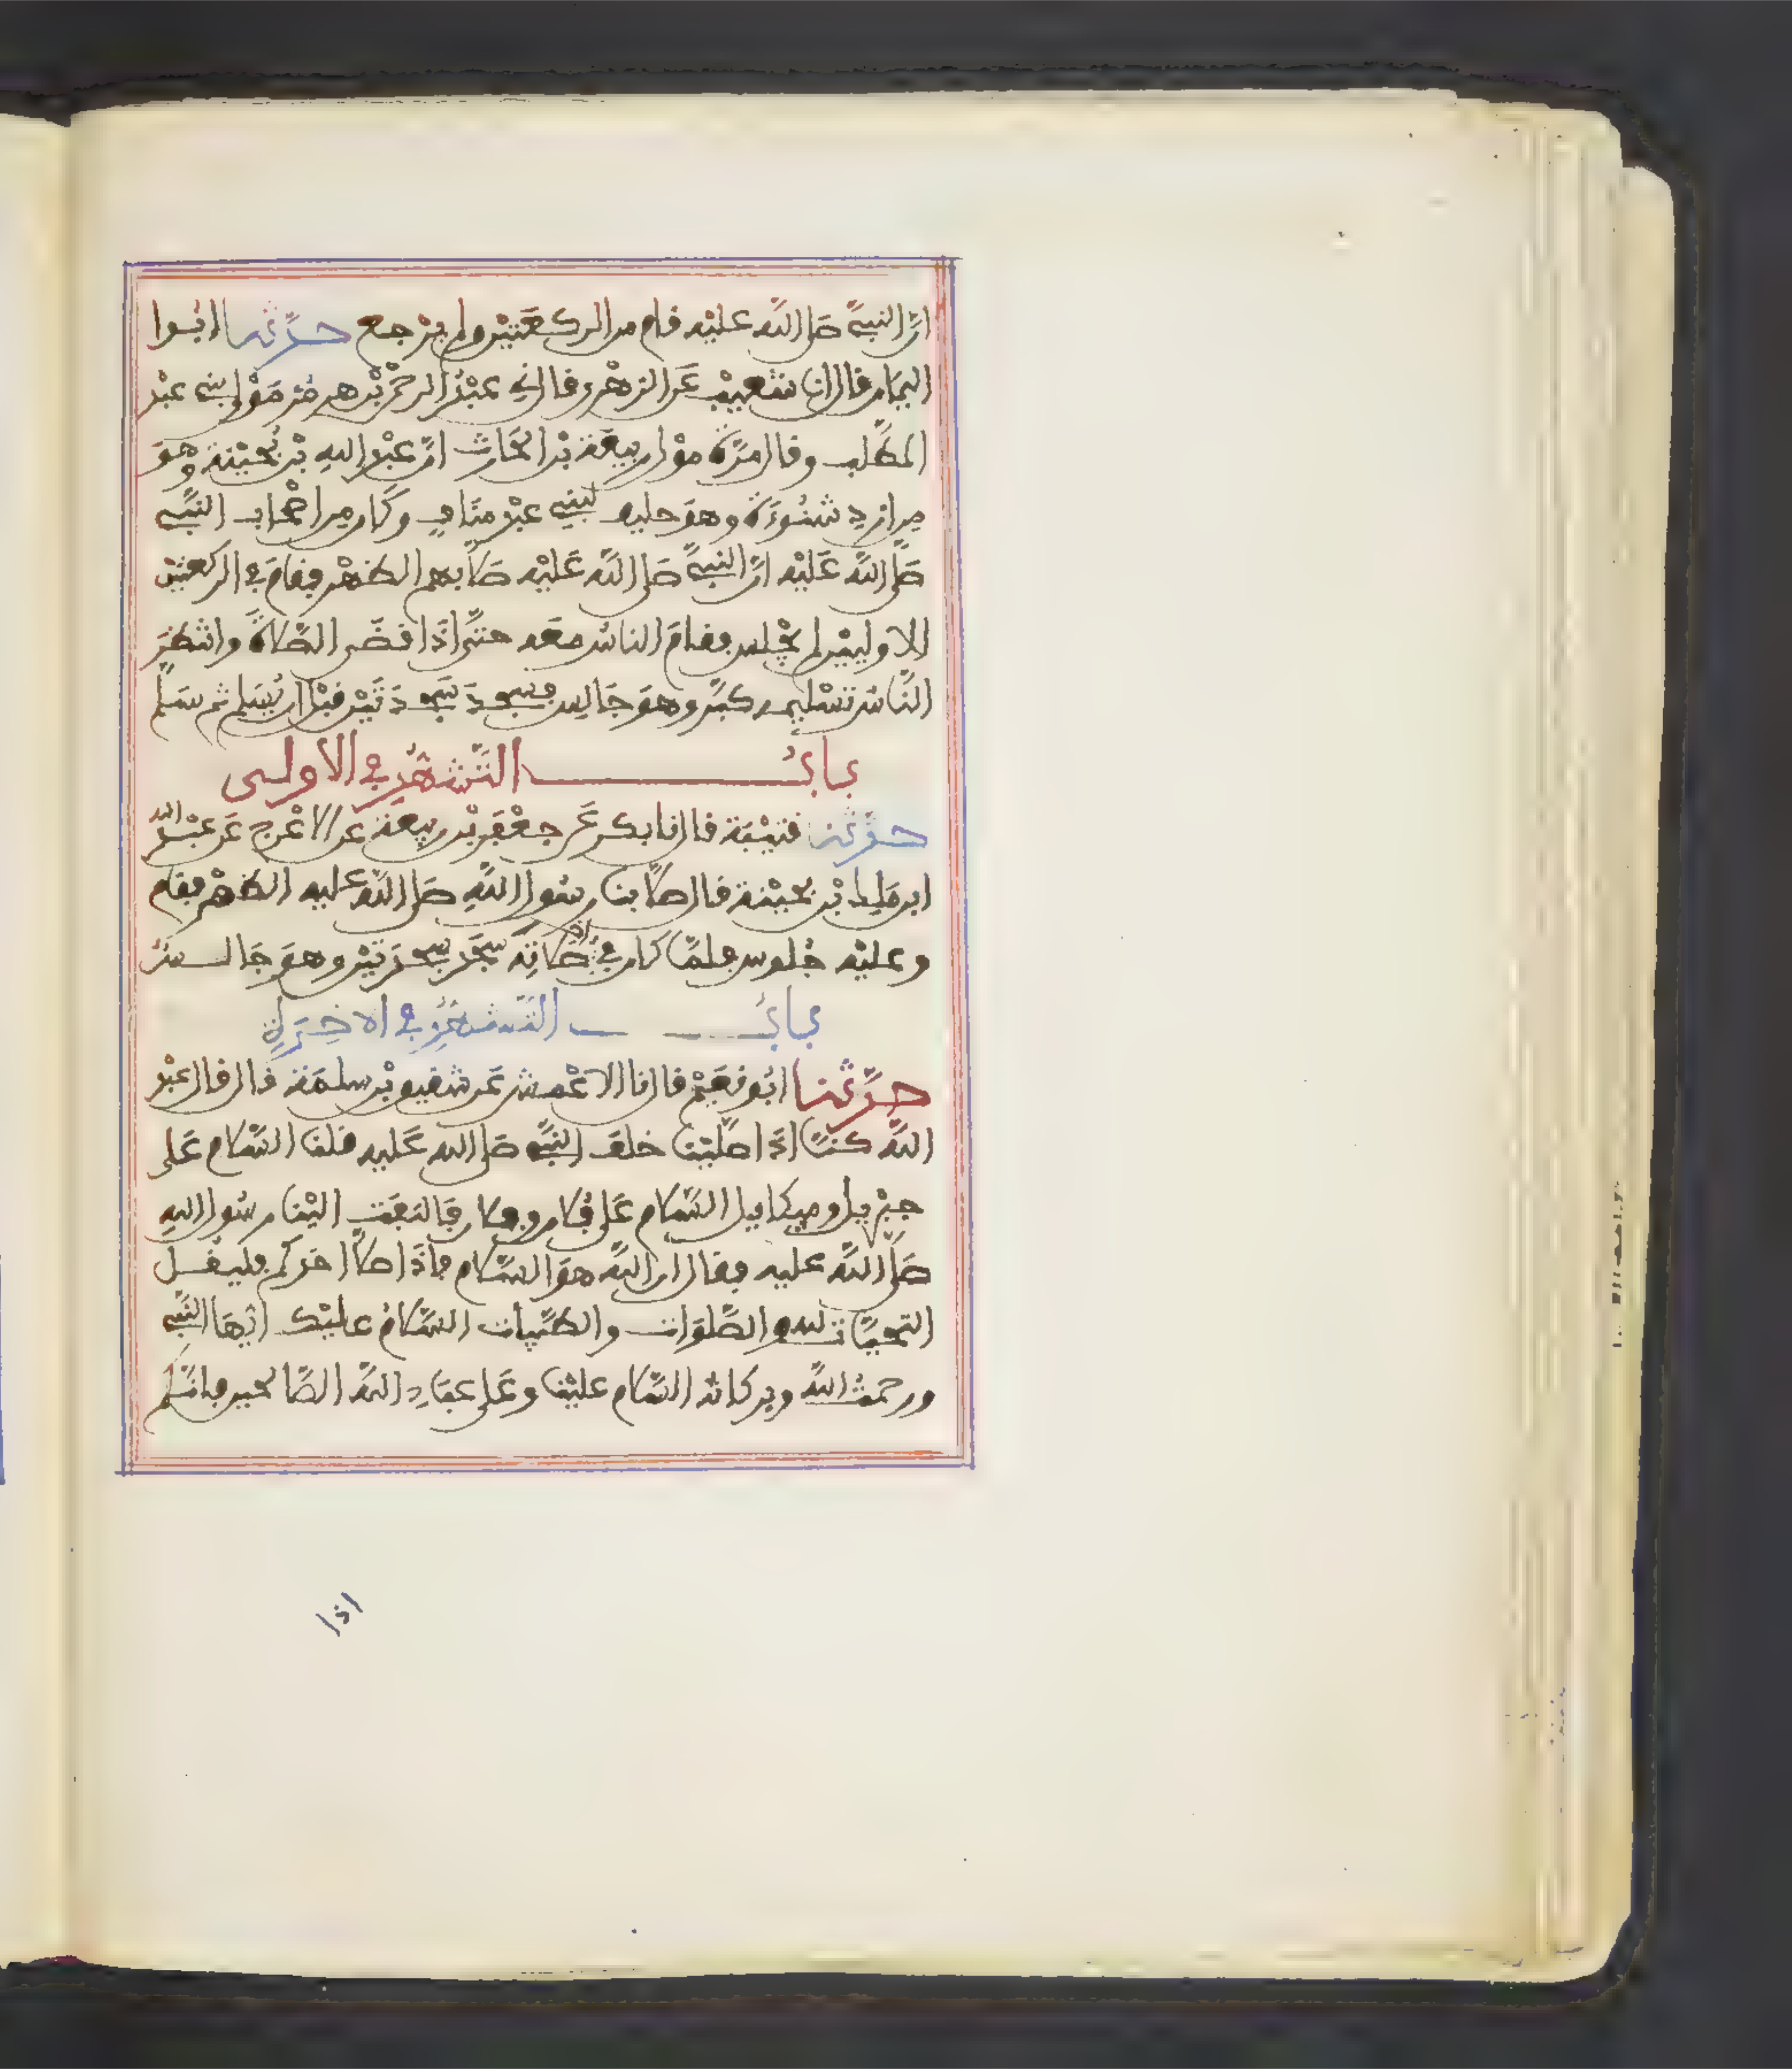 انّ النبيّ صلى اللّه عليْه قام من الركعَتيْن ولم يرْجع حدّثنا ابُوا
اليمَان قال انا شعيْب عَن الزهْري قال ني عبْدُ الرحمْن بْن هرمُز مَوْلى بني عبْد
المطّلب وقال مرّة موْلى ربيعَة بْن الحَارث انّ عبْد اللهِ بْن بُحيْنة وهوَ
مِن ازدِ شنُوءَة وهوَ حليف لبَنِي عبْد منَافٍ وكَان مِن اصْحاب النبّيِ
صَلّى اللّه عَليْه انّ النبيّ صَلى اللّه عَليْه صَلّى بهم الظهْر فقامَ في الركعتيْن
الاوليَيْن لم يجْلس فقامَ الناسُ معَه حتّى اذَا قضَى الصّلاةَ وانتْظرَ
النّاسُ تسْليمه كبّر وهوَ جَالِس فسجدَ سجدَتَيْن قبْل ان يُسَلم ثم سَلّم
بابُ التّشهُّدِ في الاولى
حدّثنا قتيْبَة قال نا بكر عَن جعْفَر بْن ربيعَة عَن الاعْرج عَن عبْد اللّه
ابن مَالِك ابْن بحيْنة قال صلّى بنا رسُول اللّهِ صَلى اللّه عليه الظهْر فقام
وعليْه جُلوس فلمّا كان في اخر صَلاتِه سجَد سجْدَتيْن وهوَ جَالسٌ
بابُ التّشهُّدِ في الاخِرَةِ
حدّثنا ابُو نعَيْم قال نا الاعْمش عَن شقيق بْن سلمَة قال قال عبْد
اللّه كنّا اذَا صلّيْنَا خلفَ النبيّ صَلى الله عَليه قلنا السّلام عَلى
جبْريل وميكاييل السّلام عَلى فُلان وفلان فَالتفَت اليْنا رسُول اللهِ
صَلّى اللّه عليه فقال ان اللّه هوَ السّلام فاذَا صَلّى احَدكم فليقل
التحيّات للهِ والصّلوَات والطّيّبات السّلامُ عليْك ايّهَا النّبيّ
ورحمَةُ اللّه وبركاته السّلام عليْنا وعَلى عبَادِ اللّه الصّالحين فانّكُم
اذا